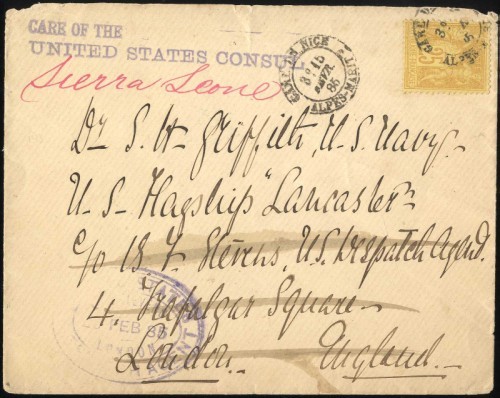 CARE OF THE
UNITED STATES CONSUL
Sierra Leone
GARE DE NICE
ALPES-MARIT
86
25
Dr S. W. Griffith, U.S. Navy.
U-S- Flagship "Lancaster"
c/o B. F. Stevens, U.S. Despatch Agent.
4, Trafalgar Square-
London. England.
FEB 86
LONDON